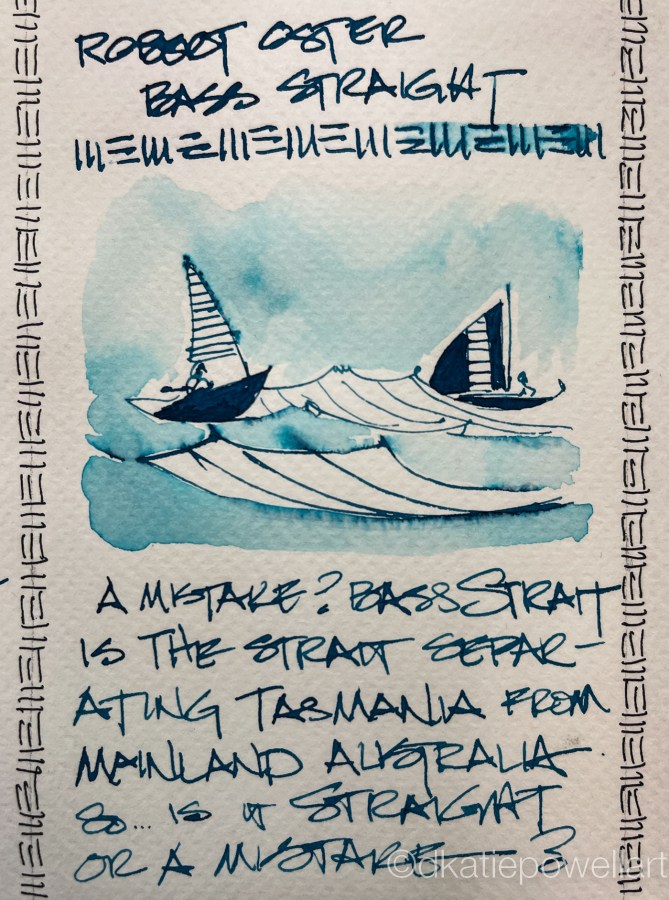 ROBERT OSTER
BASS STRAIGHT
A MISTAKE? BASS STRAIT
IS THE STRAIT SEPAR-
ATING TASMANIA FROM
MAINLAND AUSTRALIA
SO... IS IT STRAIGHT
OR A MISTAKE—?
©dkatiepowellart